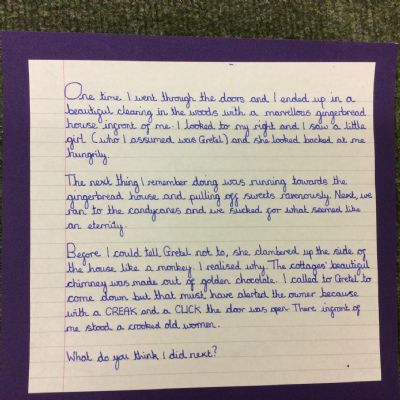 One time I went through the doors and I ended up in a
beautiful clearing in the woods with a marvellous gingerbread
house infront of me. I looked to my right and I saw a little
girl (who I assumed was Gretel) and she looked backed at me
hungrily.
The next thing I remember doing was running towards the
gingerbread house and, pulling off sweets ravenously. Next, we
ran to the candycanes and we sucked for what seemed like
an eternity.
Before I could tell Gretel not to, she clambered up the side of
the house like a monkey. I realised why. The cottages' beautiful
chimney was made out of golden chocolate. I called to Gretel to
come down but that must have alerted the owner because
with a CREAK and a CLICK the door was open. There infront of
me stood a crooked old women.
What do you think I did next?